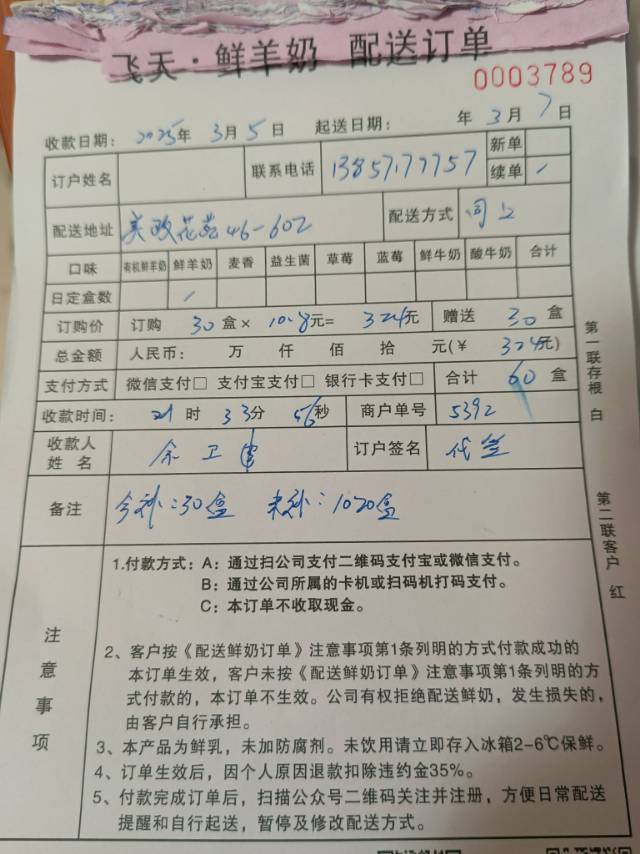 飞天·鲜羊奶 配送订单
0003789
收款日期: 2025年 3月 5日 起送日期: 年 3月 7日
订户姓名 联系电话 13857177757 新单
续单 /
配送地址 美政花苑46-602 配送方式 同上
口味 有机鲜羊奶 鲜羊奶 麦香 益生菌 草莓 蓝莓 鲜牛奶 酸牛奶 合计
日定盒数 /
订购价 订购 30盒× 10.8元= 324元 赠送 30盒
总金额 人民币: 万 仟 佰 拾 元(¥ 324元)
支付方式 微信支付□ 支付宝支付□ 银行卡支付□ 合计 60盒
收款时间: 21时 33分 56秒 商户单号 5392
收款人姓名 余卫 订户签名 代签
备注 今补:30盒 未补:1020盒
注意事项
1.付款方式: A: 通过扫公司支付二维码支付宝或微信支付。
B: 通过公司所属的卡机或扫码机打码支付。
C: 本订单不收取现金。
2、客户按《配送鲜奶订单》注意事项第1条列明的方式付款成功的
本订单生效,客户未按《配送鲜奶订单》注意事项第1条列明的方
式付款的,本订单不生效。公司有权拒绝配送鲜奶,发生损失的,
由客户自行承担。
3、本产品为鲜乳,未加防腐剂。未饮用请立即存入冰箱2-6℃保鲜。
4、订单生效后,因个人原因退款扣除违约金35%。
5、付款完成订单后,扫描公众号二维码关注并注册,方便日常配送
提醒和自行起送,暂停及修改配送方式。
第一联存根 白
第二联客户 红